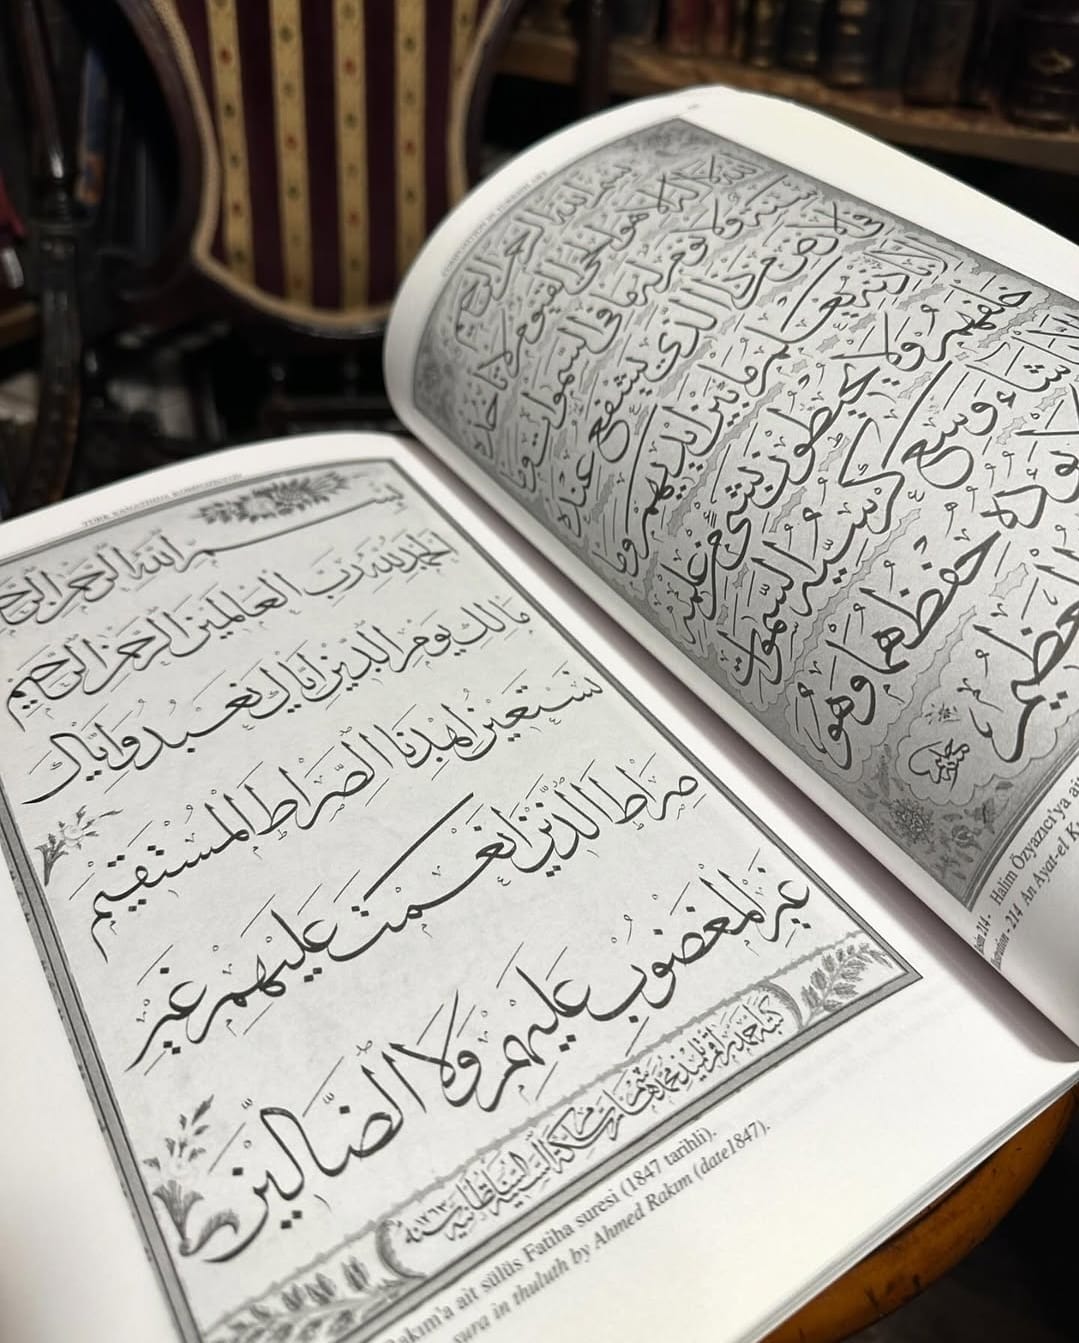 TÜRK SANATINDA KOMPOZİSYON
بسم الله الرحمن الرحيم
الحمد لله رب العالمين الرحمن الرحيم
مالك يوم الدين اياك نعبد واياك
نستعين اهدنا الصراط المستقيم
صراط الذين انعمت عليهم غير
غير المغضوب عليهم ولا الضالين
كتبه احمد راقم تلميذ محمد هاشم
Rakım'a ait sülüs Fatiha suresi (1847 tarihli).
sura in thuluth by Ahmed Rakım (date1847).
COMPOSITION IN TURKISH ART
بسم الله الرحمن الرحيم
الله لا اله الا هو الحي القيوم لا تأخذه
سنة ولا نوم له ما في السموات و
ما في الارض من ذا الذي يشفع عنده
الا باذنه يعلم ما بين ايديهم وما
خلفهم ولا يحيطون بشيء من علمه
الا بما شاء وسع كرسيه السموات
حفظهما وهو
العظيم
214 - Halim Özyazıcı'ya ait
214 An Ayat-el K